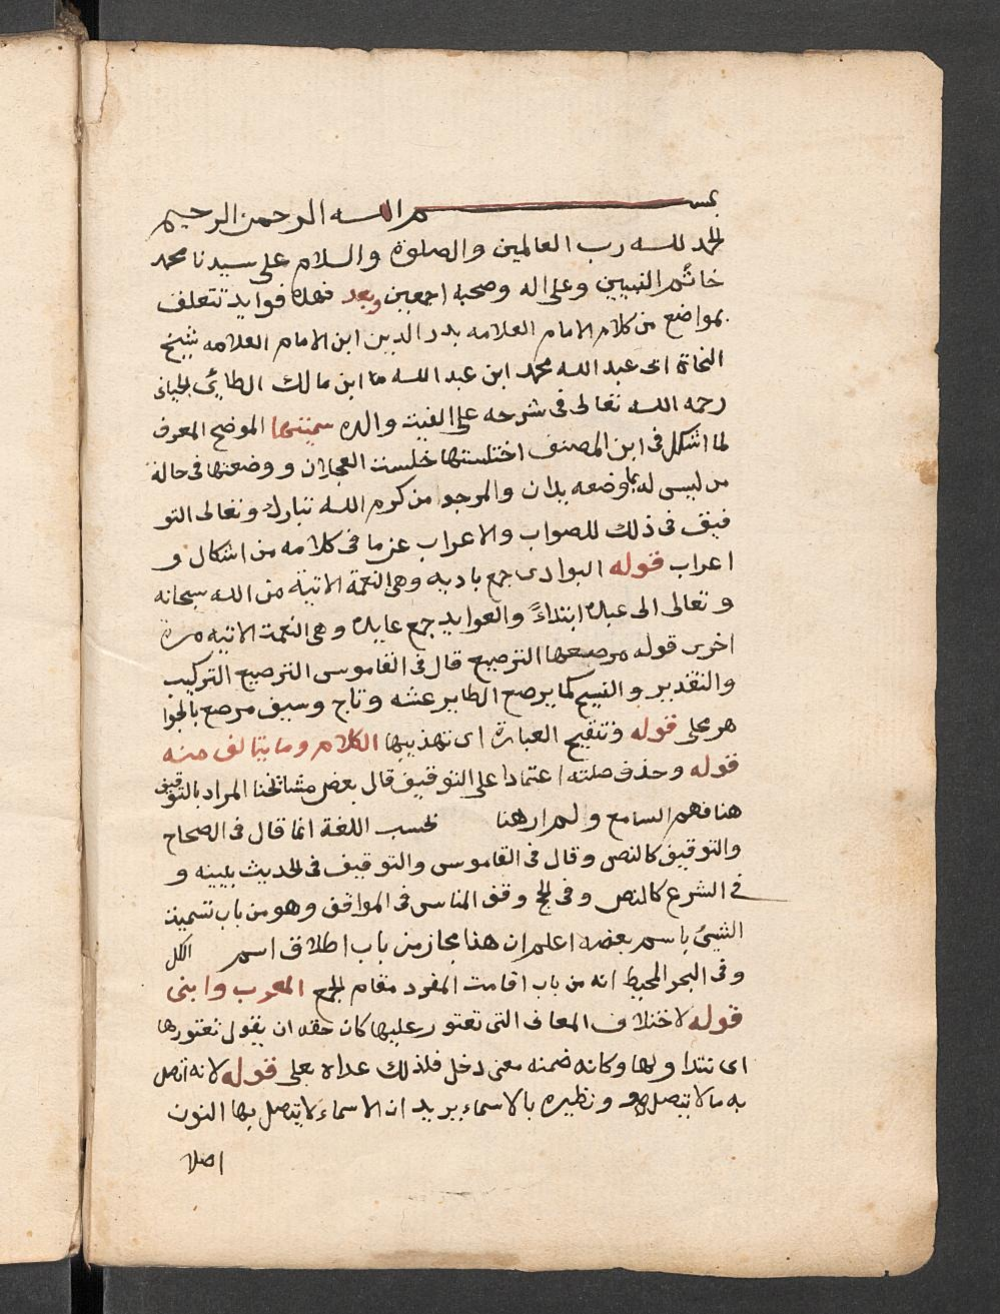 بسم الله الرحمن الرحيم
الحمد لله رب العالمين والصلوة والسلام على سيدنا محمد
خاتم النبيين وعلى اله وصحبه اجمعين وبعد فهذه فوايد تتعلف
بمواضع من كلام الامام العلامه بدر الدين ابن الامام العلامه شيخ
النحاة ابى عبد الله محمد ابن عبد الله ابن مالك الطائى الجيانى
رحمه الله تعالى فى شرحه على الفيت والده سميتها الموضح المعرف
لما اشكل فى ابن المصنف اختلستها خلست العجلان ووضعتها فى حالة
من ليس له بما وضعه يدان والمرجو من كرم الله تبارك وتعالى التو
فيق فى ذلك للصواب والاعراب عن ما فى كلامه من اشكال و
اعراب قوله البوادى جمع باديه وهى النعمة الاتية من الله سبحانه
وتعالى الى عبده ابتداءً والعوايد جمع عايده وهى النعمت الاتيه مرة
اخرى قوله مرصعها الترصيع قال فى القاموس الترصيع التركيب
والتقدير والنسج كما يرصع الطاير عشه وتاج وسيف مرصع بالجوا
هر محلى قوله وتنقيح العبارة اى تهذيبها الكلام وما يتالف منه
قوله وحذف صلته اعتمادا على التوقيف قال بعض مشائخنا المراد بالتوقيف
هنا فهم السامع ولم ار هنا بحسب اللغة انما قال فى الصحاح
والتوقيف كالنص وقال فى القاموس والتوقيف فى الحديث بيينه و
فى الشرع كالنص وفى الحج وقف الناس فى المواقف وهو من باب تسميت
الشىء باسم بعضه اعلم ان هذا مجاز من باب اطلاق اسم الكل
وفى البحر المحيط انه من باب اقامت المفرد مقام الجمع المعرب وابنى
قوله لاختلاف المعانى التى تعتور عليها كان حقه ان يقول تعتورها
اى تتداولها وكانه ضمنه معنى دخل فلذلك عداه بعلى قوله لانه اتصل
به ما لا يتصل هو ونظيره بالاسماء يريد ان الاسماء لا يتصل بها النون
اصلا